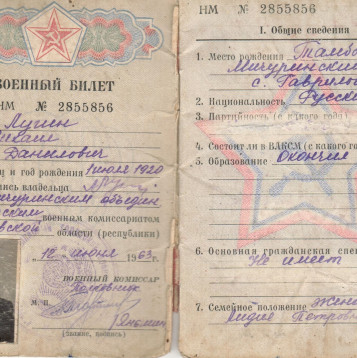 ВОЕННЫЙ БИЛЕТ
НМ № 2855856
Лугин
Данилович
и год рождения 1 июля 1920
пись владельца
чуринским объедин
военным комиссариатом
области (республики)
„12" июня 1963 г.
ВОЕННЫЙ КОМИССАР
Полковник
М. П.
(звание, подпись)
НМ № 2855856
I. Общие сведения
1. Место рождения Тамбо
Мичуринский
с. Гаврило
2. Национальность Русский
3. Партийность (с какого года)
4. Состоит ли в ВЛКСМ (с какого г
5. Образование Окончил
6. Основная гражданская спец
не имеет
7. Семейное положение жена
Лидия Петров